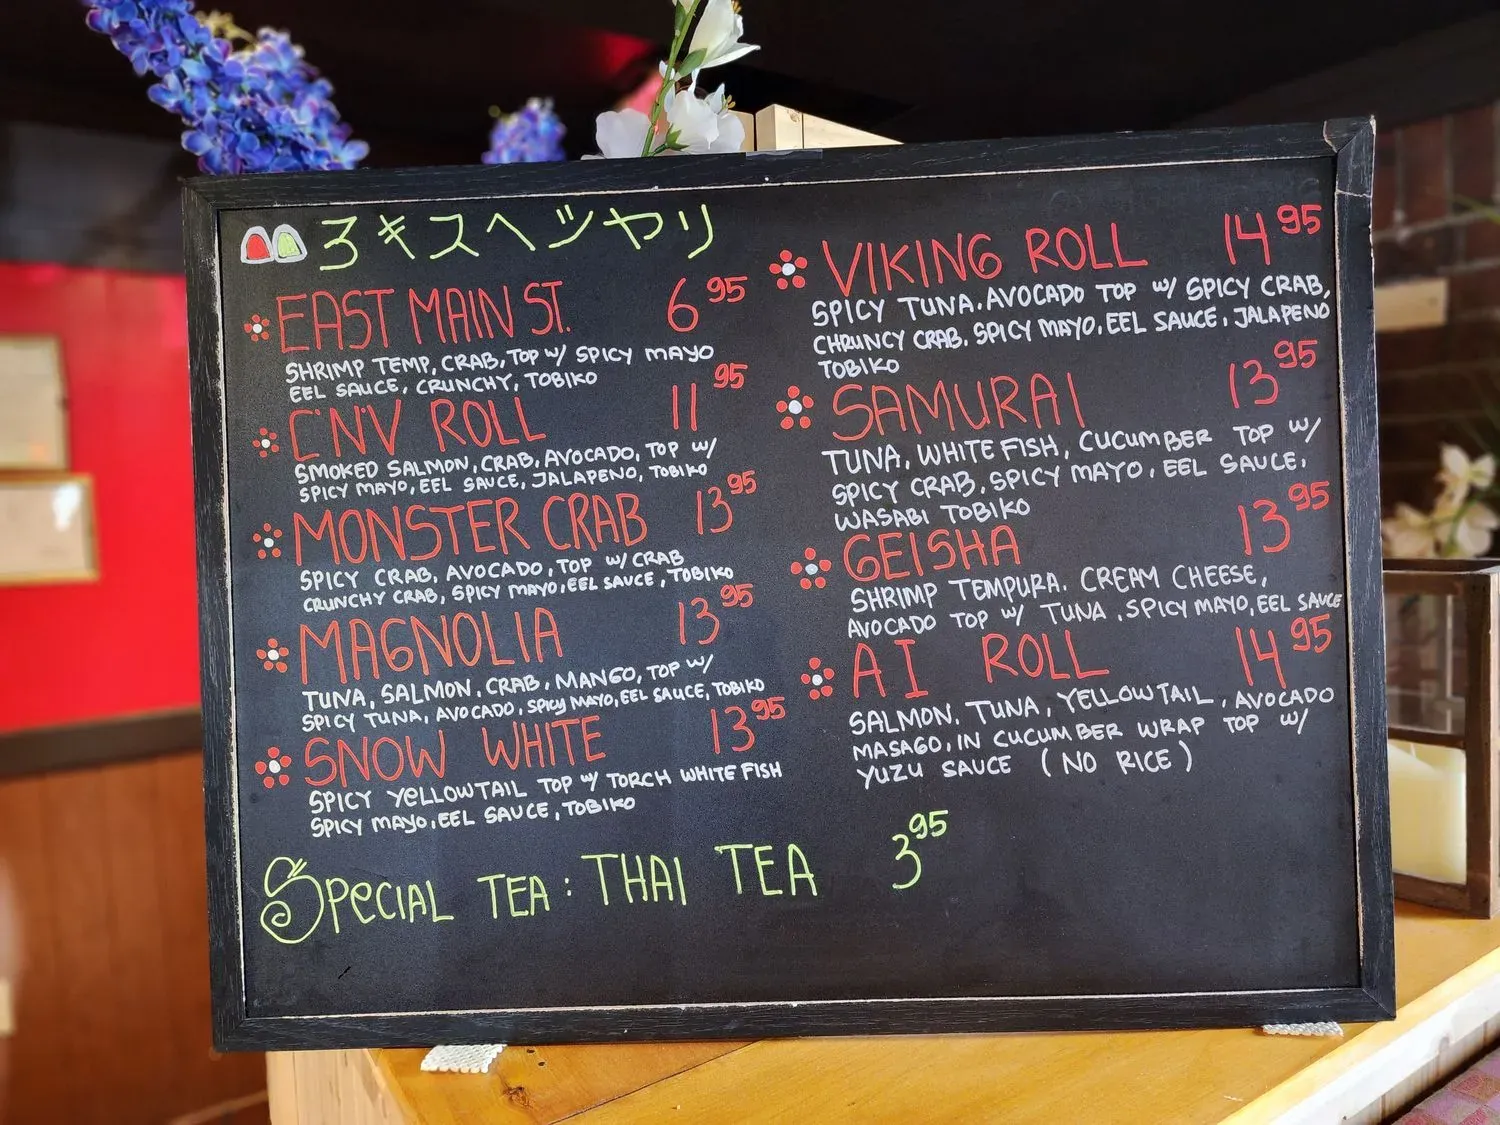 ろキスヘツヤリ
EAST MAIN ST. 6 95
SHRIMP TEMP, CRAB, TOP W/ SPICY MAYO
EEL SAUCE, CRUNCHY, TOBIKO
C'N'V ROLL 11 95
SMOKED SALMON, CRAB, AVOCADO, TOP W/
SPICY MAYO, EEL SAUCE, JALAPENO, TOBIKO
MONSTER CRAB 13 95
SPICY CRAB, AVOCADO, TOP W/ CRAB
CRUNCHY CRAB, SPICY MAYO, EEL SAUCE, TOBIKO
MAGNOLIA 13 95
TUNA, SALMON, CRAB, MANGO, TOP W/
SPICY TUNA, AVOCADO, SPICY MAYO, EEL SAUCE, TOBIKO
SNOW WHITE 13 95
SPICY YELLOWTAIL TOP W/ TORCH WHITE FISH
SPICY MAYO, EEL SAUCE, TOBIKO
VIKING ROLL 14 95
SPICY TUNA, AVOCADO TOP W/ SPICY CRAB,
CHRUNCY CRAB, SPICY MAYO, EEL SAUCE, JALAPENO
TOBIKO
SAMURAI 13 95
TUNA, WHITE FISH, CUCUMBER TOP W/
SPICY CRAB, SPICY MAYO, EEL SAUCE,
WASABI TOBIKO
GEISHA 13 95
SHRIMP TEMPURA, CREAM CHEESE,
AVOCADO TOP W/ TUNA, SPICY MAYO, EEL SAUCE
AI ROLL 14 95
SALMON, TUNA, YELLOWTAIL, AVOCADO
MASAGO, IN CUCUMBER WRAP TOP W/
YUZU SAUCE (NO RICE)
SPECIAL TEA: THAI TEA 3 95